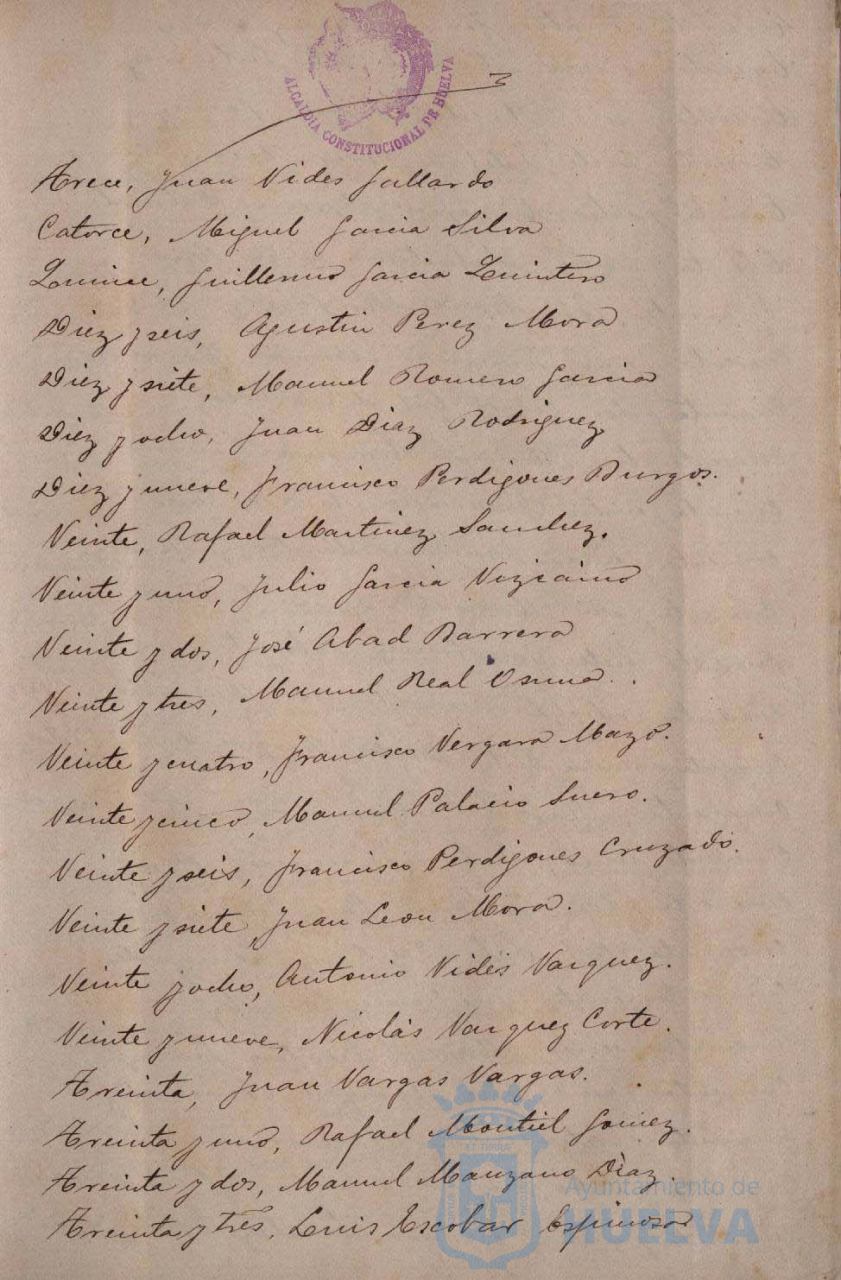 ALCALDIA CONSTITUCIONAL DE HUELVA
Trece, Juan Vides Gallardo
Catorce, Miguel Garcia Silva
Quince, Guillermo Garcia Quintero
Diez y seis, Agustin Perez Mora
Diez y siete, Manuel Romero Garcia
Diez y ocho, Juan Diaz Rodriguez
Diez y nueve, Francisco Perdigones Burgos.
Veinte, Rafael Martinez Sanchez.
Veinte y uno, Julio Garcia Vizcaino
Veinte y dos, José Abad Barrera
Veinte y tres, Manuel Real Osuna.
Veinte y cuatro, Francisco Vergara Mazo.
Veinte y cinco, Manuel Palacio Suero.
Veinte y seis, Francisco Perdigones Cruzado.
Veinte y siete, Juan Leon Mora.
Veinte y ocho, Antonio Vides Vazquez.
Veinte y nueve, Nicolás Vazquez Corte.
Treinta, Juan Vargas Vargas.
Treinta y uno, Rafael Montiel Gomez.
Treinta y dos, Manuel Manzano Diaz.
Treinta y tres, Luis Escobar Espinosa
Ayuntamiento de
HUELVA